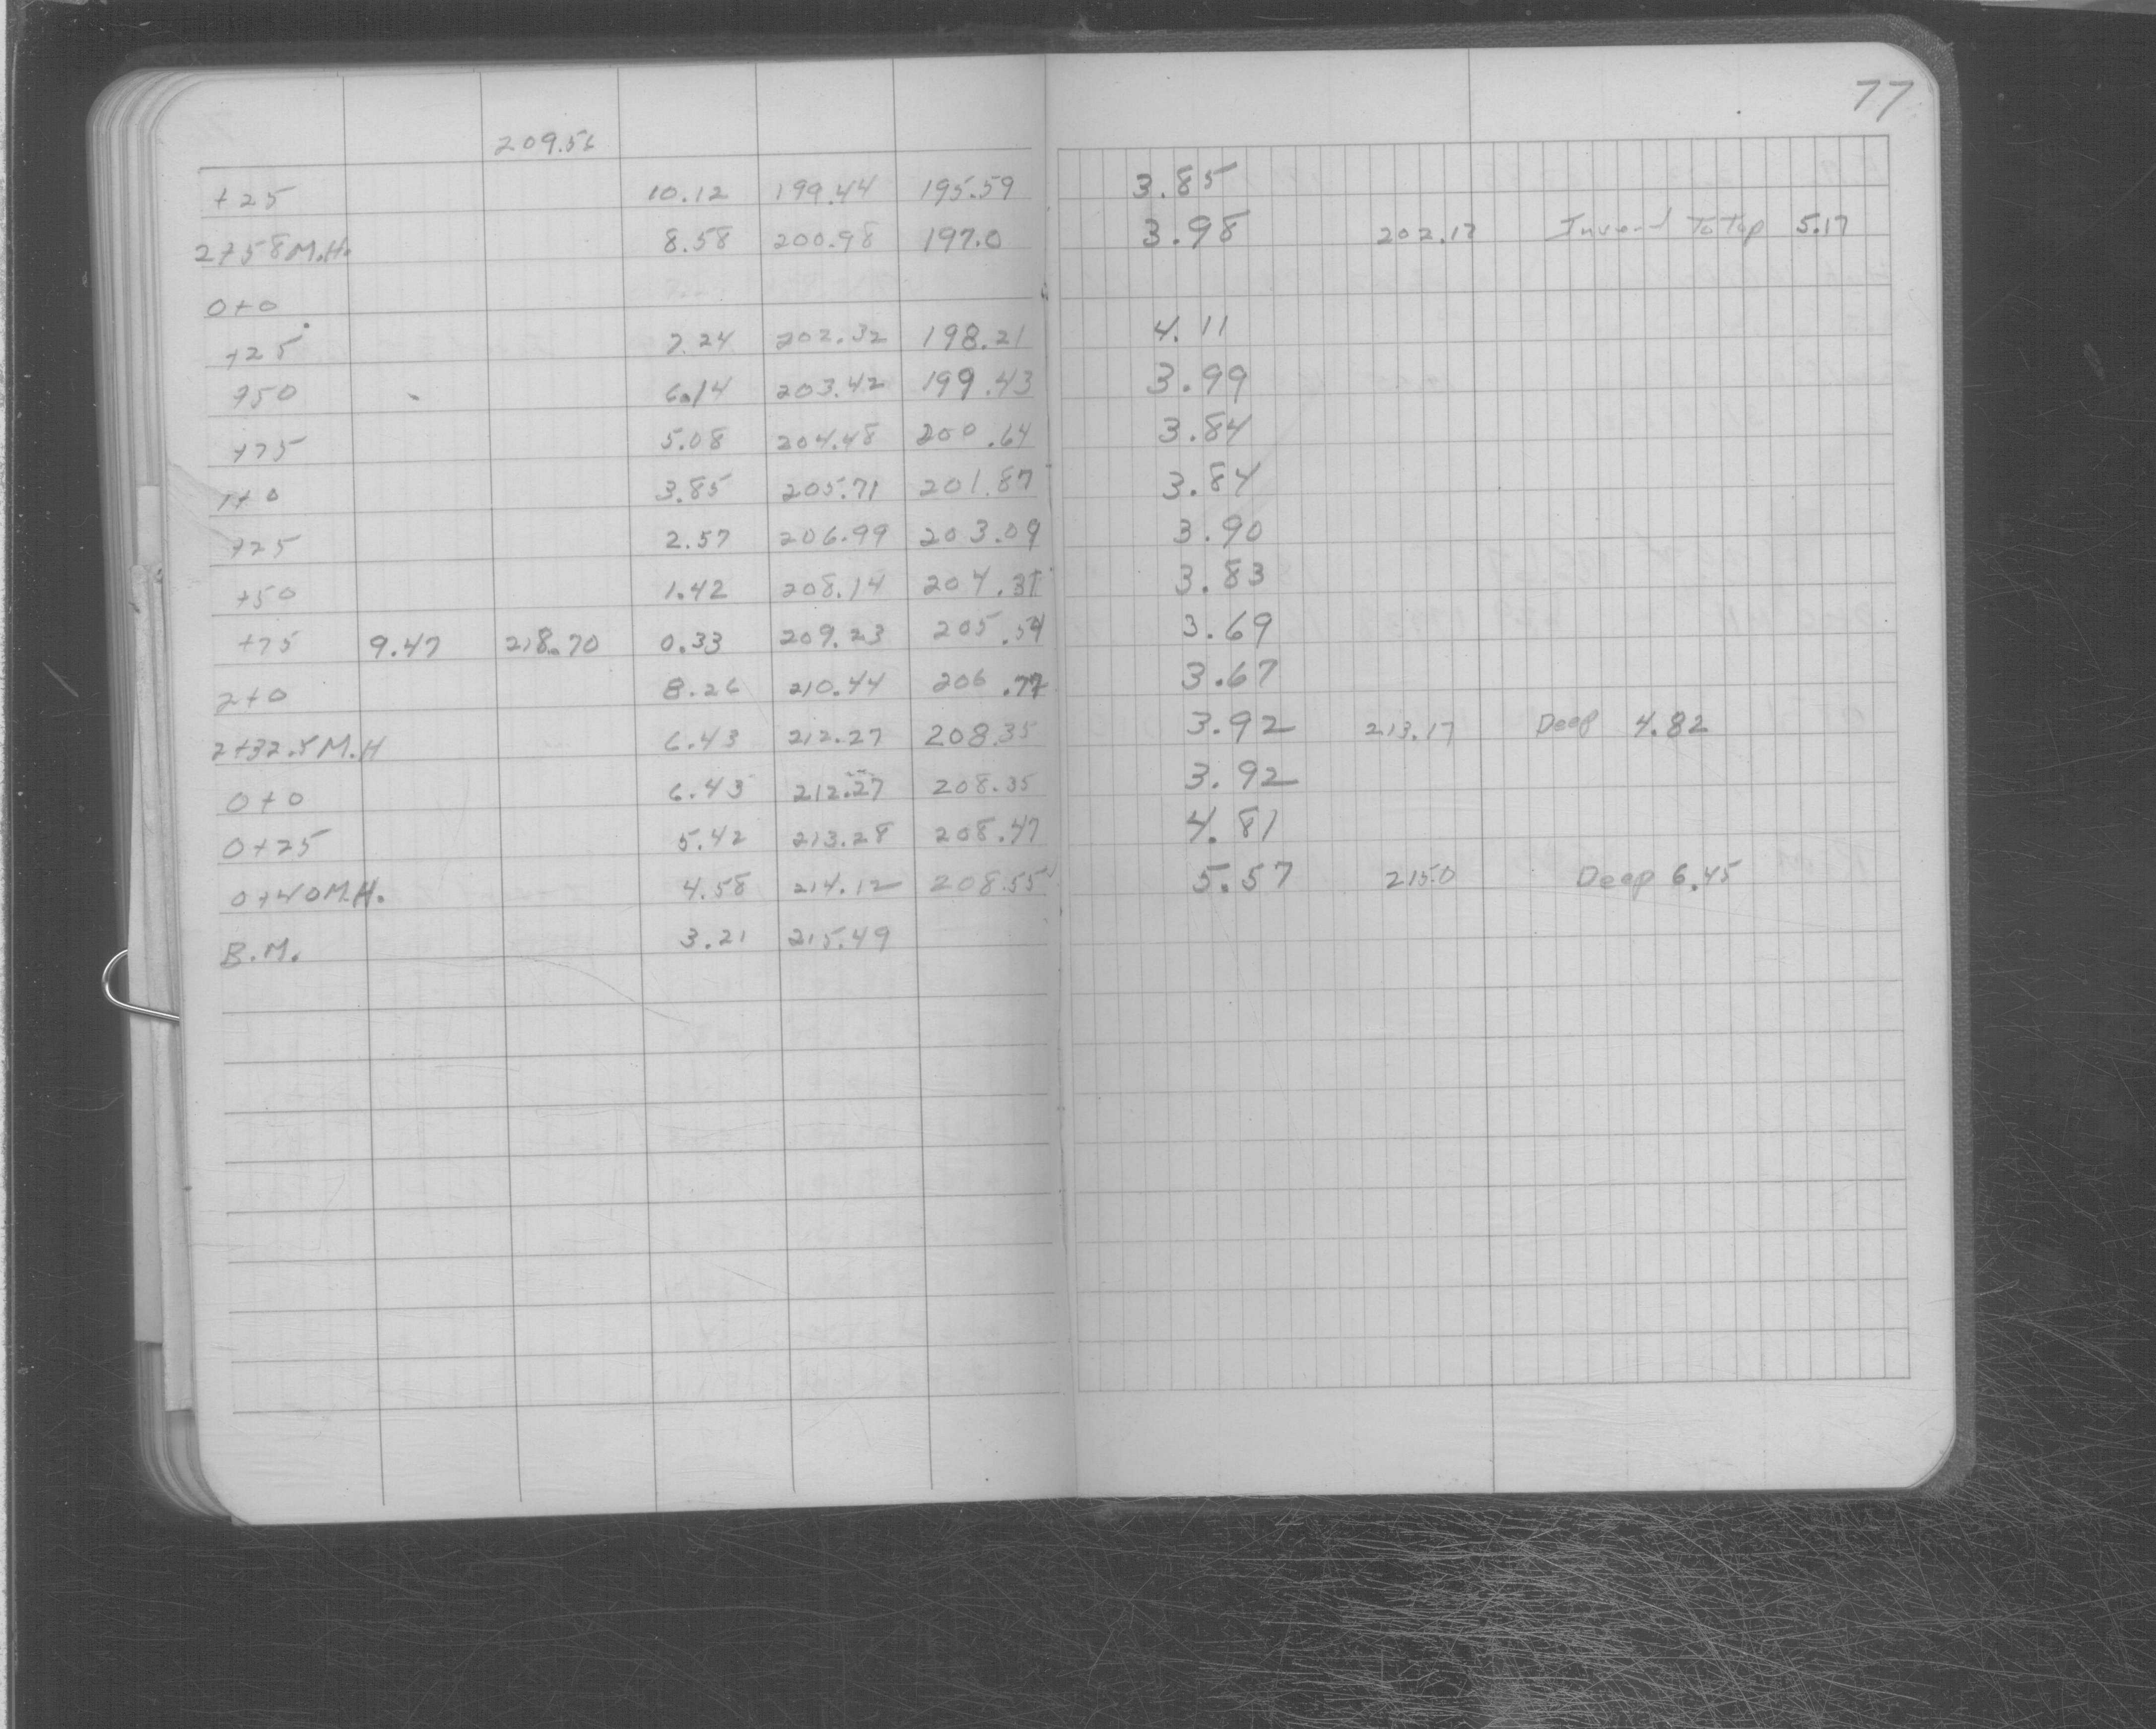 77
209.56
+25 10.12 199.44 195.59 3.85
2+58 M.H. 8.58 200.98 197.0 3.98 202.17 Invert To Top 5.17
0+0
+25 7.24 202.32 198.21 4.11
+50 6.14 203.42 199.43 3.99
+75 5.08 204.48 200.64 3.84
1+0 3.85 205.71 201.87 3.84
+25 2.57 206.99 203.09 3.90
+50 1.42 208.14 204.31 3.83
+75 9.47 218.70 0.33 209.23 205.54 3.69
2+0 8.26 210.44 206.77 3.67
2+32.5 M.H 6.43 212.27 208.35 3.92 213.17 Deep 4.82
0+0 6.43 212.27 208.35 3.92
0+25 5.42 213.28 208.47 4.81
0+40 M.H. 4.58 214.12 208.55 5.57 215.0 Deep 6.45
B.M. 3.21 215.49